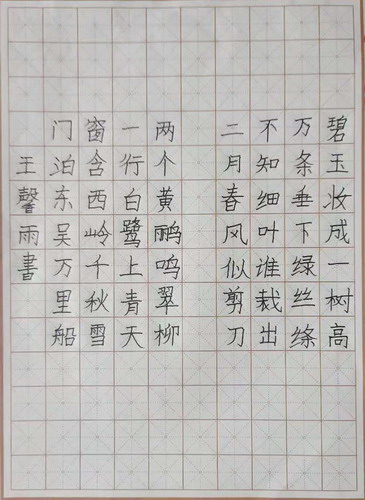 碧玉妆成一树高
万条垂下绿丝绦
不知细叶谁裁出
二月春风似剪刀
两个黄鹂鸣翠柳
一行白鹭上青天
窗含西岭千秋雪
门泊东吴万里船
王馨雨書